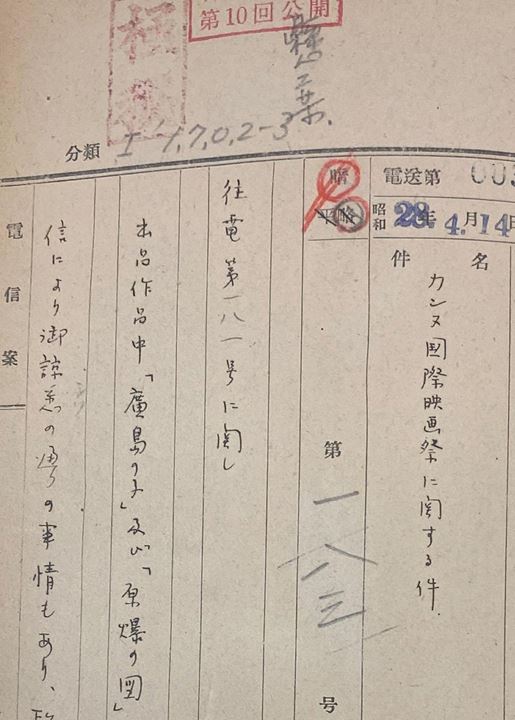 第10回公開
極秘
分類 I'4,7,0,2-3
電送第 003
昭和 28年 4.月 14日
件名
カンヌ国際映画祭に関する件
暗
平略
第一八三号
往電第一八一号に関し
出品作品中「廣島の子」及び「原爆の図」
信により御諒悉の通りの事情もあり、
電信案